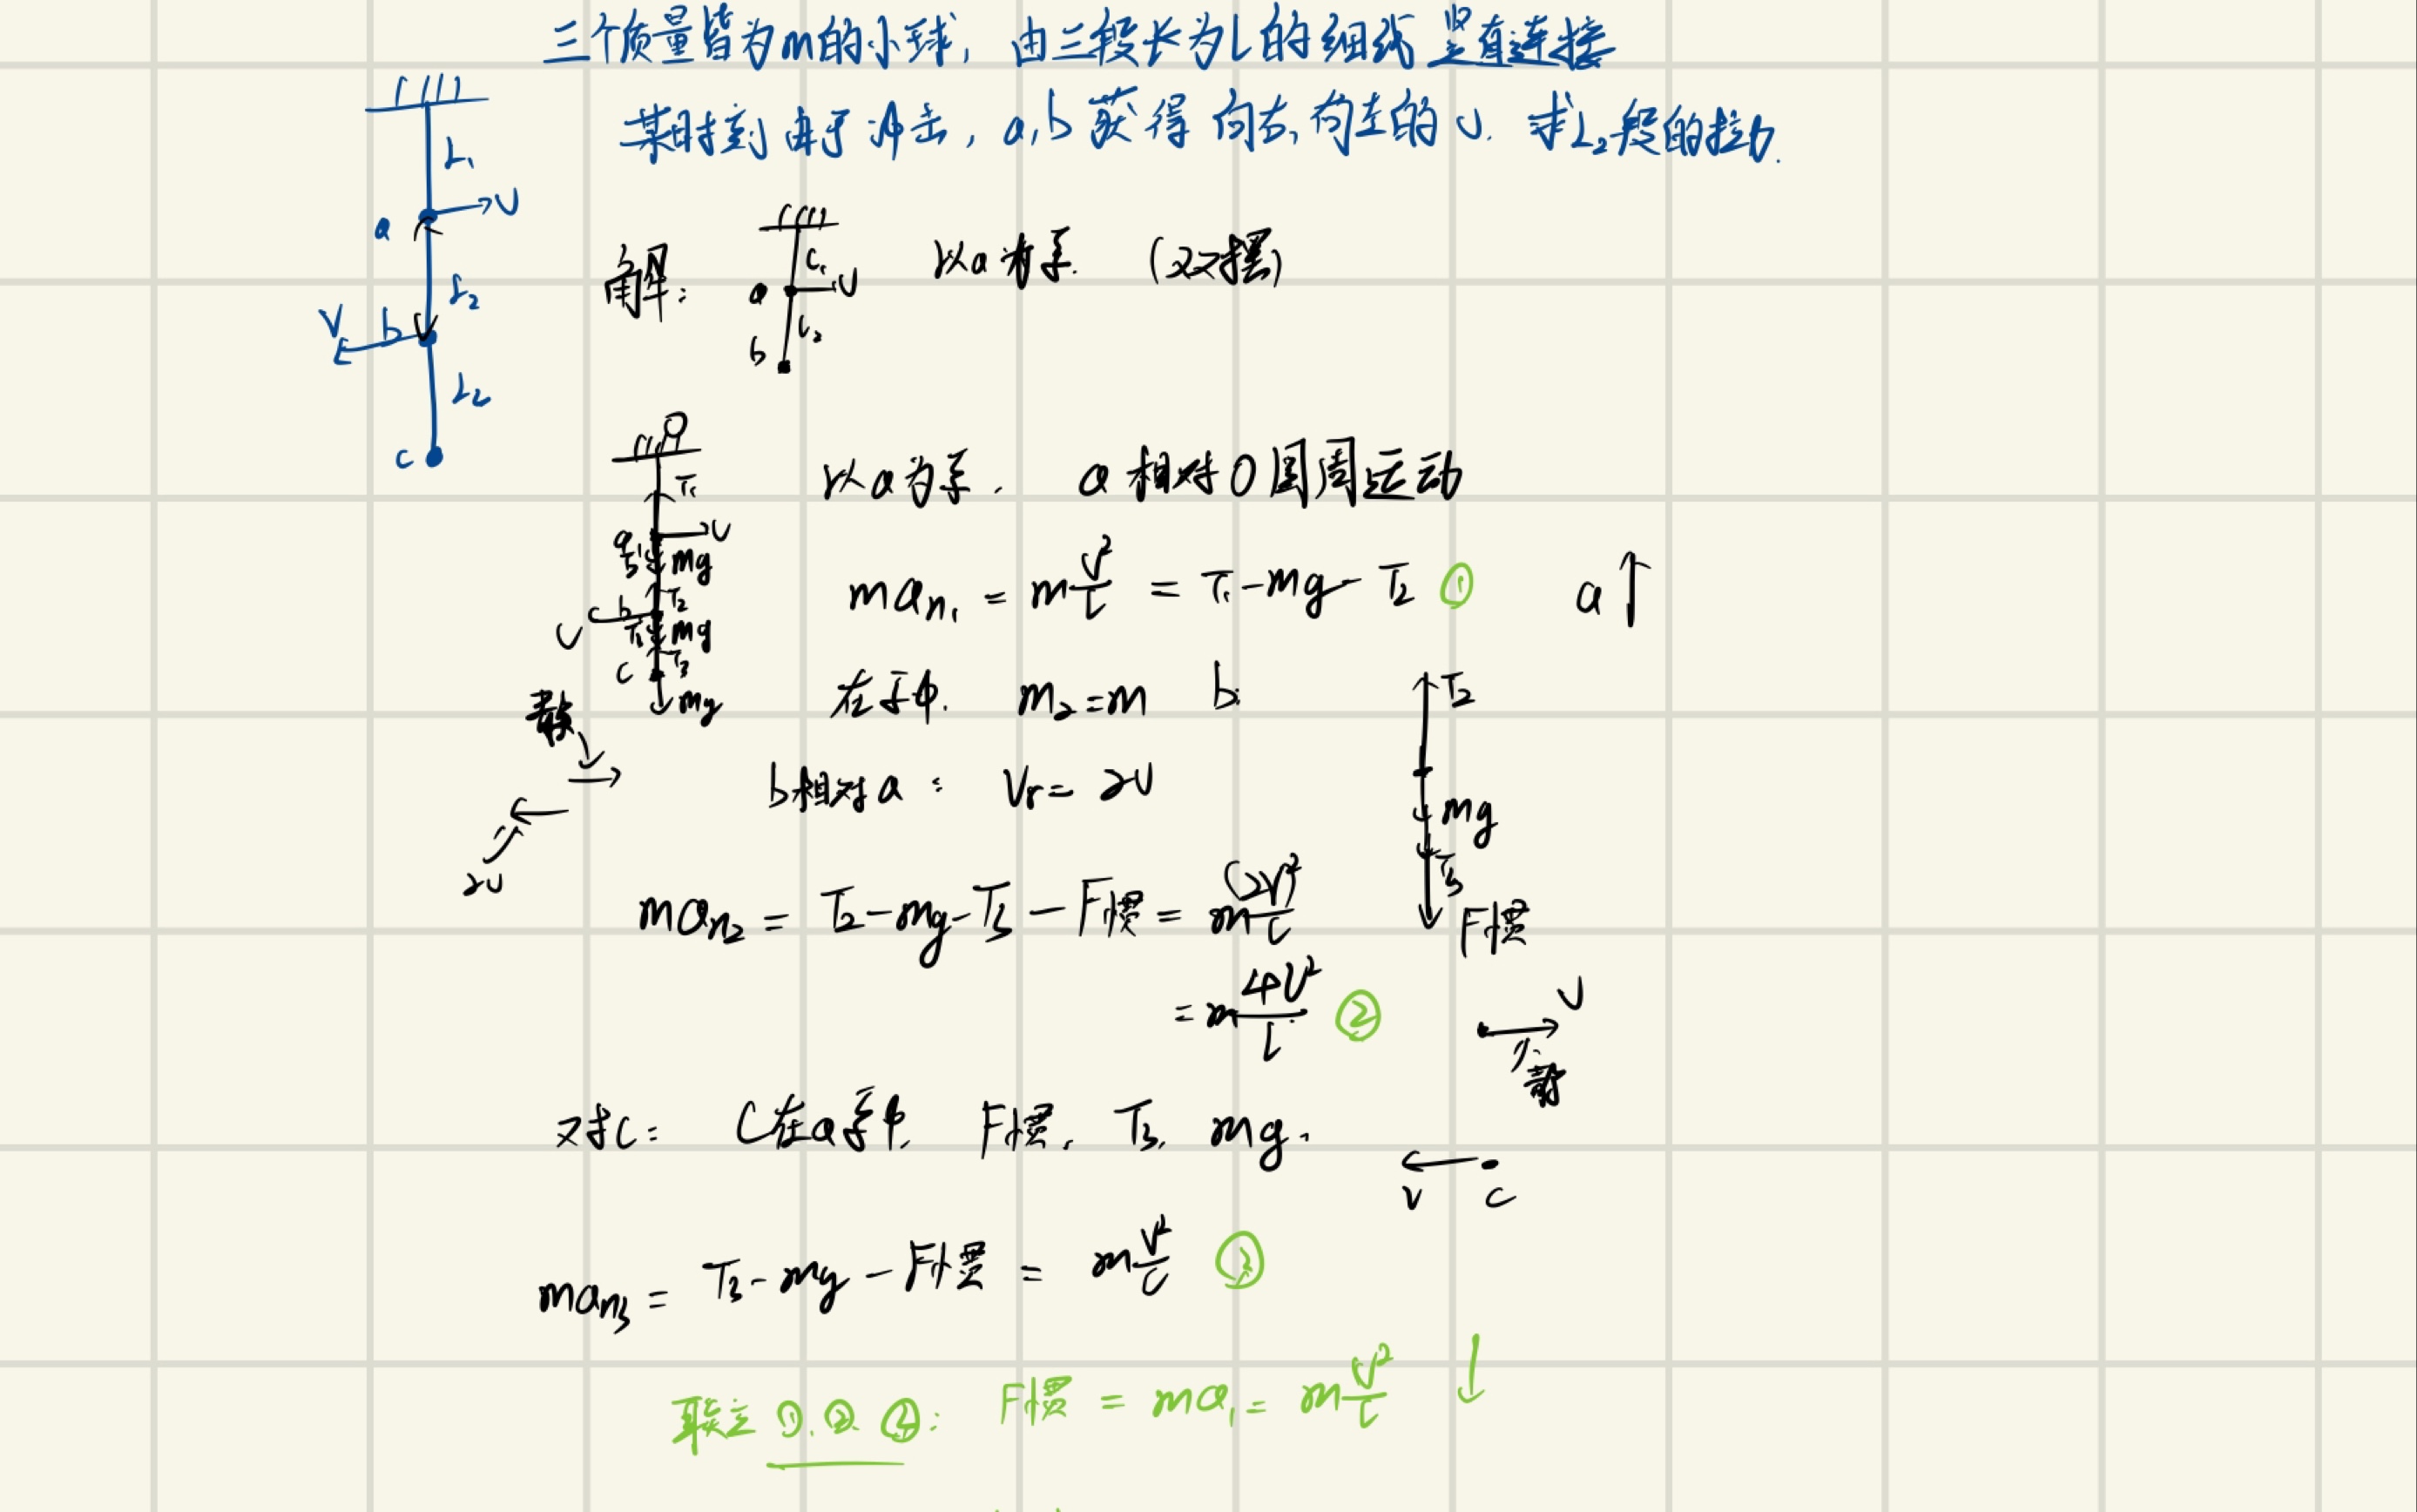 三个质量皆为m的小球，由三段长为L的细线竖直连接
某时刻由于冲击，a,b获得向右,向左的v. 求L₂段的拉力.
L₁
a v
L₂
V b
L₂
c
解： L₁ a v L₂ b 以a为系. (双摆)
O
T₁
v
a mg
T₂
b mg
v
c T₃
mg
以a为系. a相对O圆周运动
maₙ₁ = m v²/L = T₁-mg-T₂ ① a↑
在系中. m₂=m b:
b相对a: Vr= 2v
2v
T₂
mg
T₃
F惯
maₙ₂ = T₂-mg-T₃-F惯 = m (2v)²/L
= m 4v²/L ②
v
对c: C在a系中, F惯, T₃, mg.
v c
maₙ₃ = T₃-mg-F惯 = m v²/L ③
联立 ①.②.④: F惯 = ma₁ = m v²/L ↓